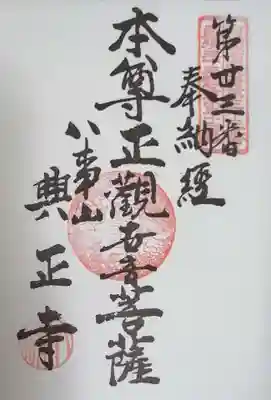 第廿三番
奉納經
本尊正觀世音菩薩
八事山
興正寺